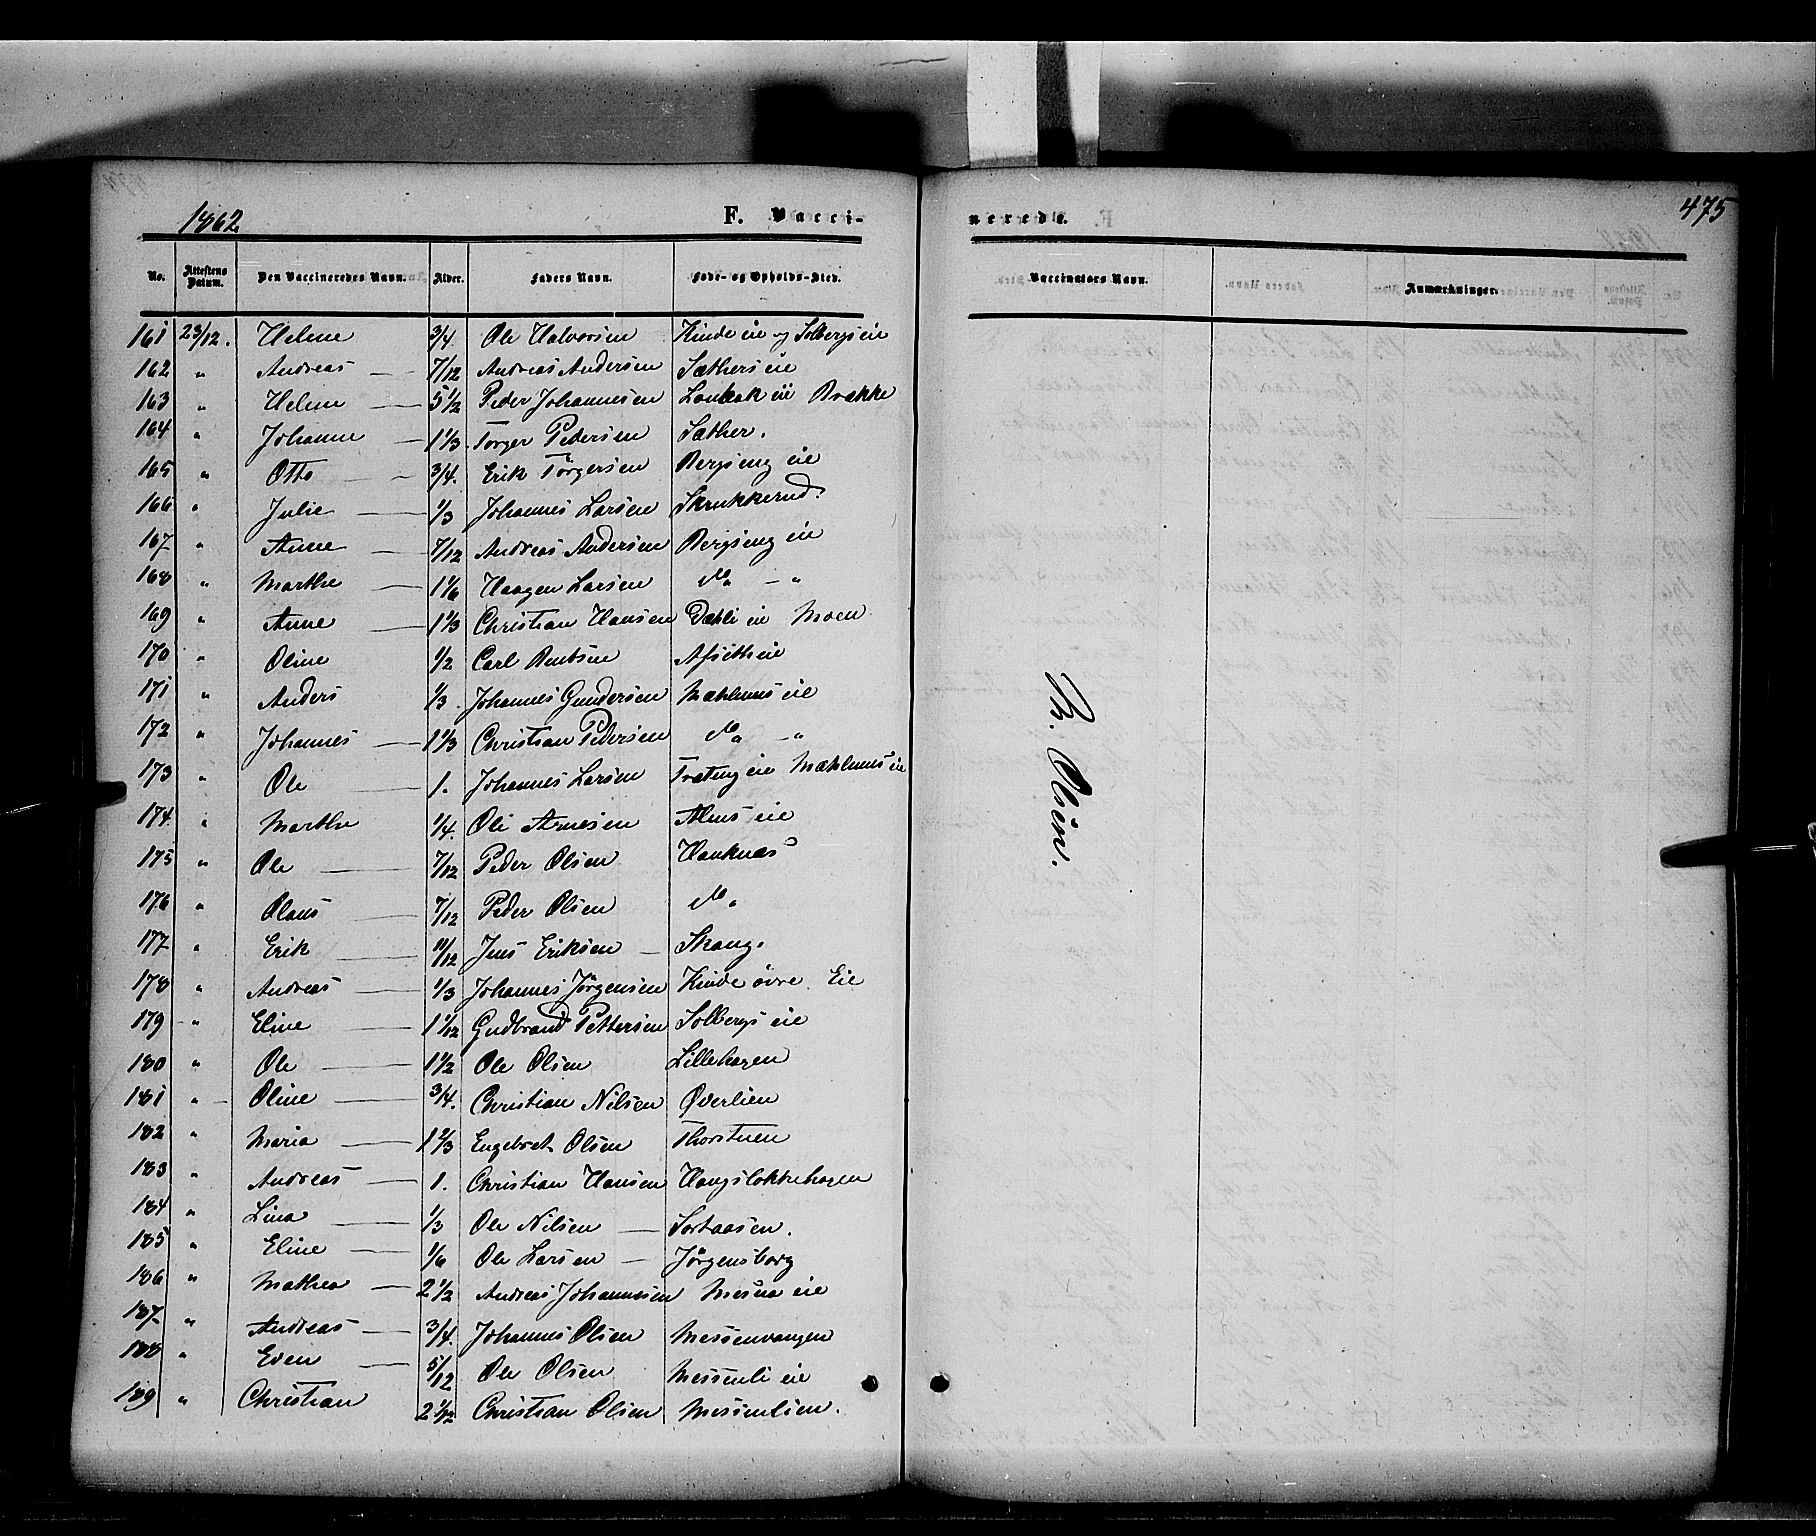 1862 F. Vacci- nerede. 475
No. Attestens Datum. Den Vaccineredes Navn. Alder. Faders Navn. Føde- og Opholds-Sted. Vaccinators Navn. Anmærkninger.
161 23/12. Helene 3/4. Ole Halvorsen Kinde eie og Solbergs eie
162 " Andreas 7/12 Andreas Andersen Sæthers eie
163 " Helene 5 1/2 Peder Johannesen eie Brække
164 " Johanne 1 1/3 Torger Pedersen Sæther.
165 " Otto 3/4. Erik Törgersen Bergseng eie
166 " Julie 1/3 Johannes Larsen Skrukkerud.
167 " Anne 7/12 Andreas Andersen Bergseng eie
168 " Marthe 1 1/6 Haagen Larsen do - "
169 " Anne 1 1/3 Christian Hansen Dæhli eie Moen
170 " Oline 1/2 Carl Berntsen
171 " Anders 1/3. Johannes Gundersen Mæhlums eie
172 " Johannes 1 1/3 Christian Pedersen do - "
173 " Ole 1. Johannes Larsen Træteng eie Mæhlums eie
174. " Marthe 1/4. Ole Arnesen Alms eie
175 " Ole 7/12 Peder Olsen Hauknæs
176 " Olaus 7/12 Peder Olsen do "
177 " Erik 11/12 Jens Eriksen Skaug.
178 " Andreas 1/3 Johannes Jörgensen Kinde övre Eie
179 " Eline 1 1/12 Gudbrand Pettersen Solbergs eie
180 " Ole 1 1/2 Ole Olsen Lillehagen
181 " Oline 3/4. Christian Nilsen Øverlien
182 " Maria 1 2/3 Engebret Olsen Thorstuen
183 " Andreas 1. Christian Hansen Haugslökkehagen
184 " Lina 1/3 Ole Nilsen Sortaasen.
185 " Eline 1/6 Ole Larsen Jörgensborg
186 " Mathea 2 1/2 Andreas Johannesen Mesna eie
187 " Andreas 3/4. Johannes Olsen Messenvangen
188 " Even 5/12 Ole Olsen Messenli eie
189 " Christian 2 1/12 Christian Olsen Messenlien.
B. Olsen.